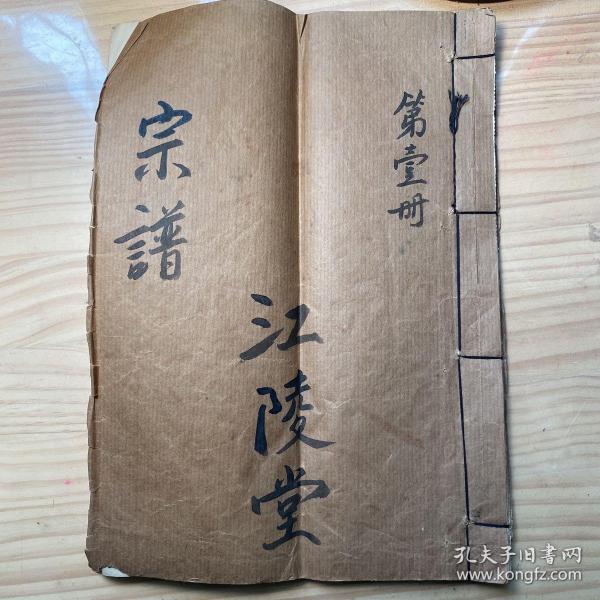 第壹册
江陵堂
宗譜
孔夫子旧書网
www.kongfz.com